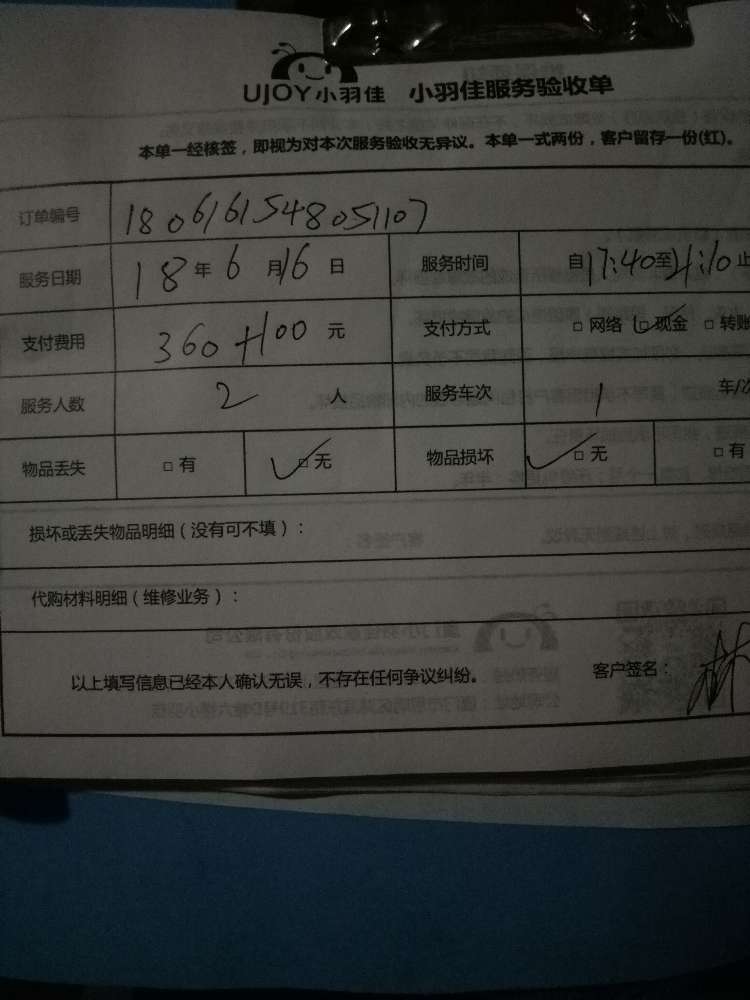 UJOY小羽佳 小羽佳服务验收单
本单一经核签，即视为对本次服务验收无异议。本单一式两份，客户留存一份(红)。
订单编号 1806161548051107
服务日期 18年6月16日 服务时间 自17:40至21:10止
支付费用 360+100元 支付方式 □网络 □现金 □转账
服务人数 2人 服务车次 1 车/次
物品丢失 □有 □无 物品损坏 □无 □有
损坏或丢失物品明细（没有可不填）：
代购材料明细（维修业务）：
以上填写信息已经本人确认无误，不存在任何争议纠纷。 客户签名：林